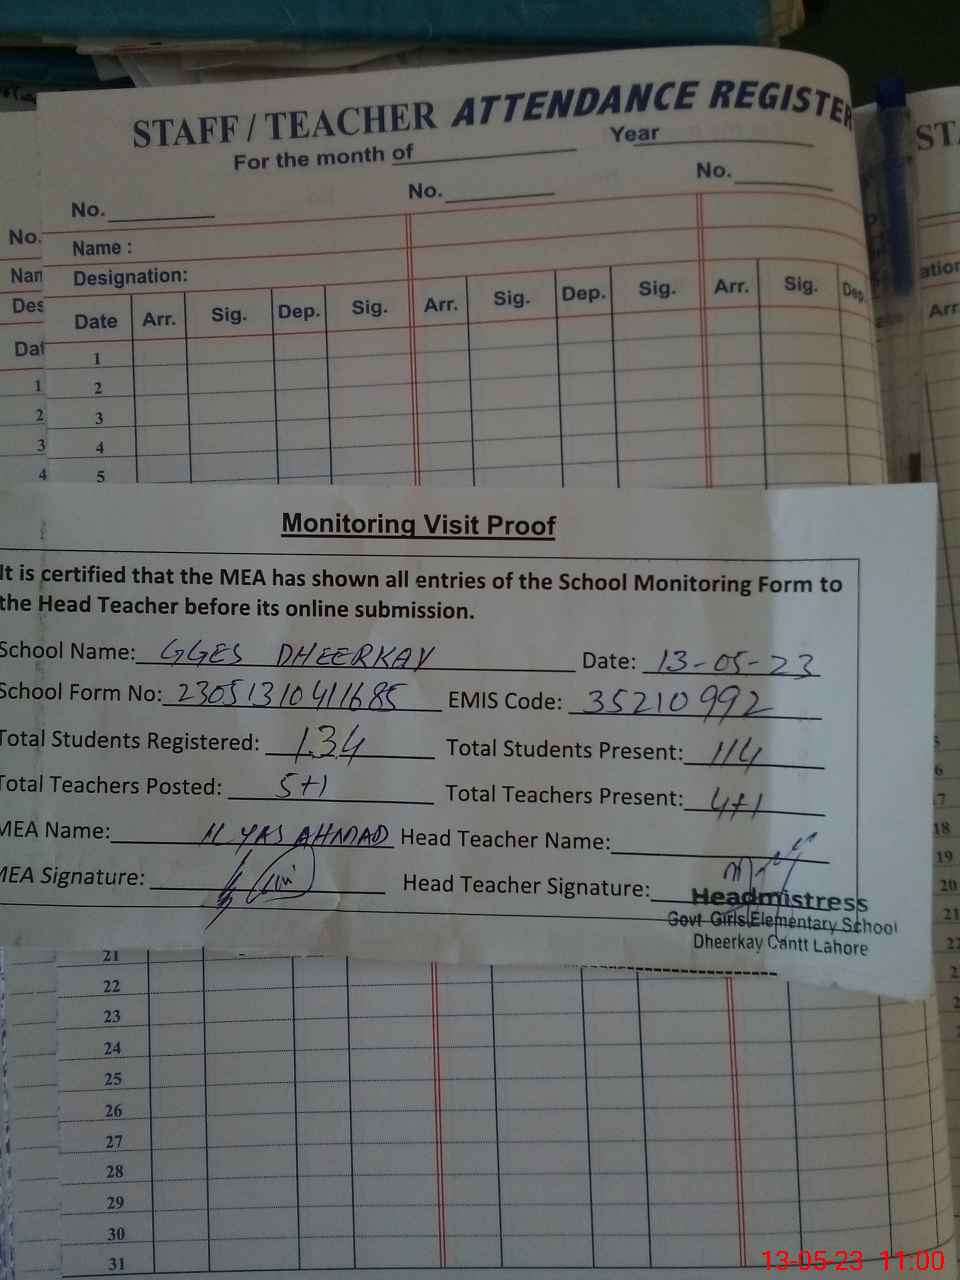 STAFF / TEACHER ATTENDANCE REGISTER
For the month of Year
No. No. No.
Name :
Designation:
Date Arr. Sig. Dep. Sig. Arr. Sig. Dep. Sig. Arr. Sig. Dep.
1
2
3
4
5
Monitoring Visit Proof
It is certified that the MEA has shown all entries of the School Monitoring Form to
the Head Teacher before its online submission.
School Name: GGES DHEERKAY Date: 13-05-23
School Form No: 23051310411685 EMIS Code: 35210992
Total Students Registered: 134 Total Students Present: 114
Total Teachers Posted: 5+1 Total Teachers Present: 4+1
MEA Name: ILYAS AHMAD Head Teacher Name:
MEA Signature: Head Teacher Signature:
Headmistress
Govt Girls Elementary School
Dheerkay Cantt Lahore
21
22
23
24
25
26
27
28
29
30
31
13-05-23 11:00